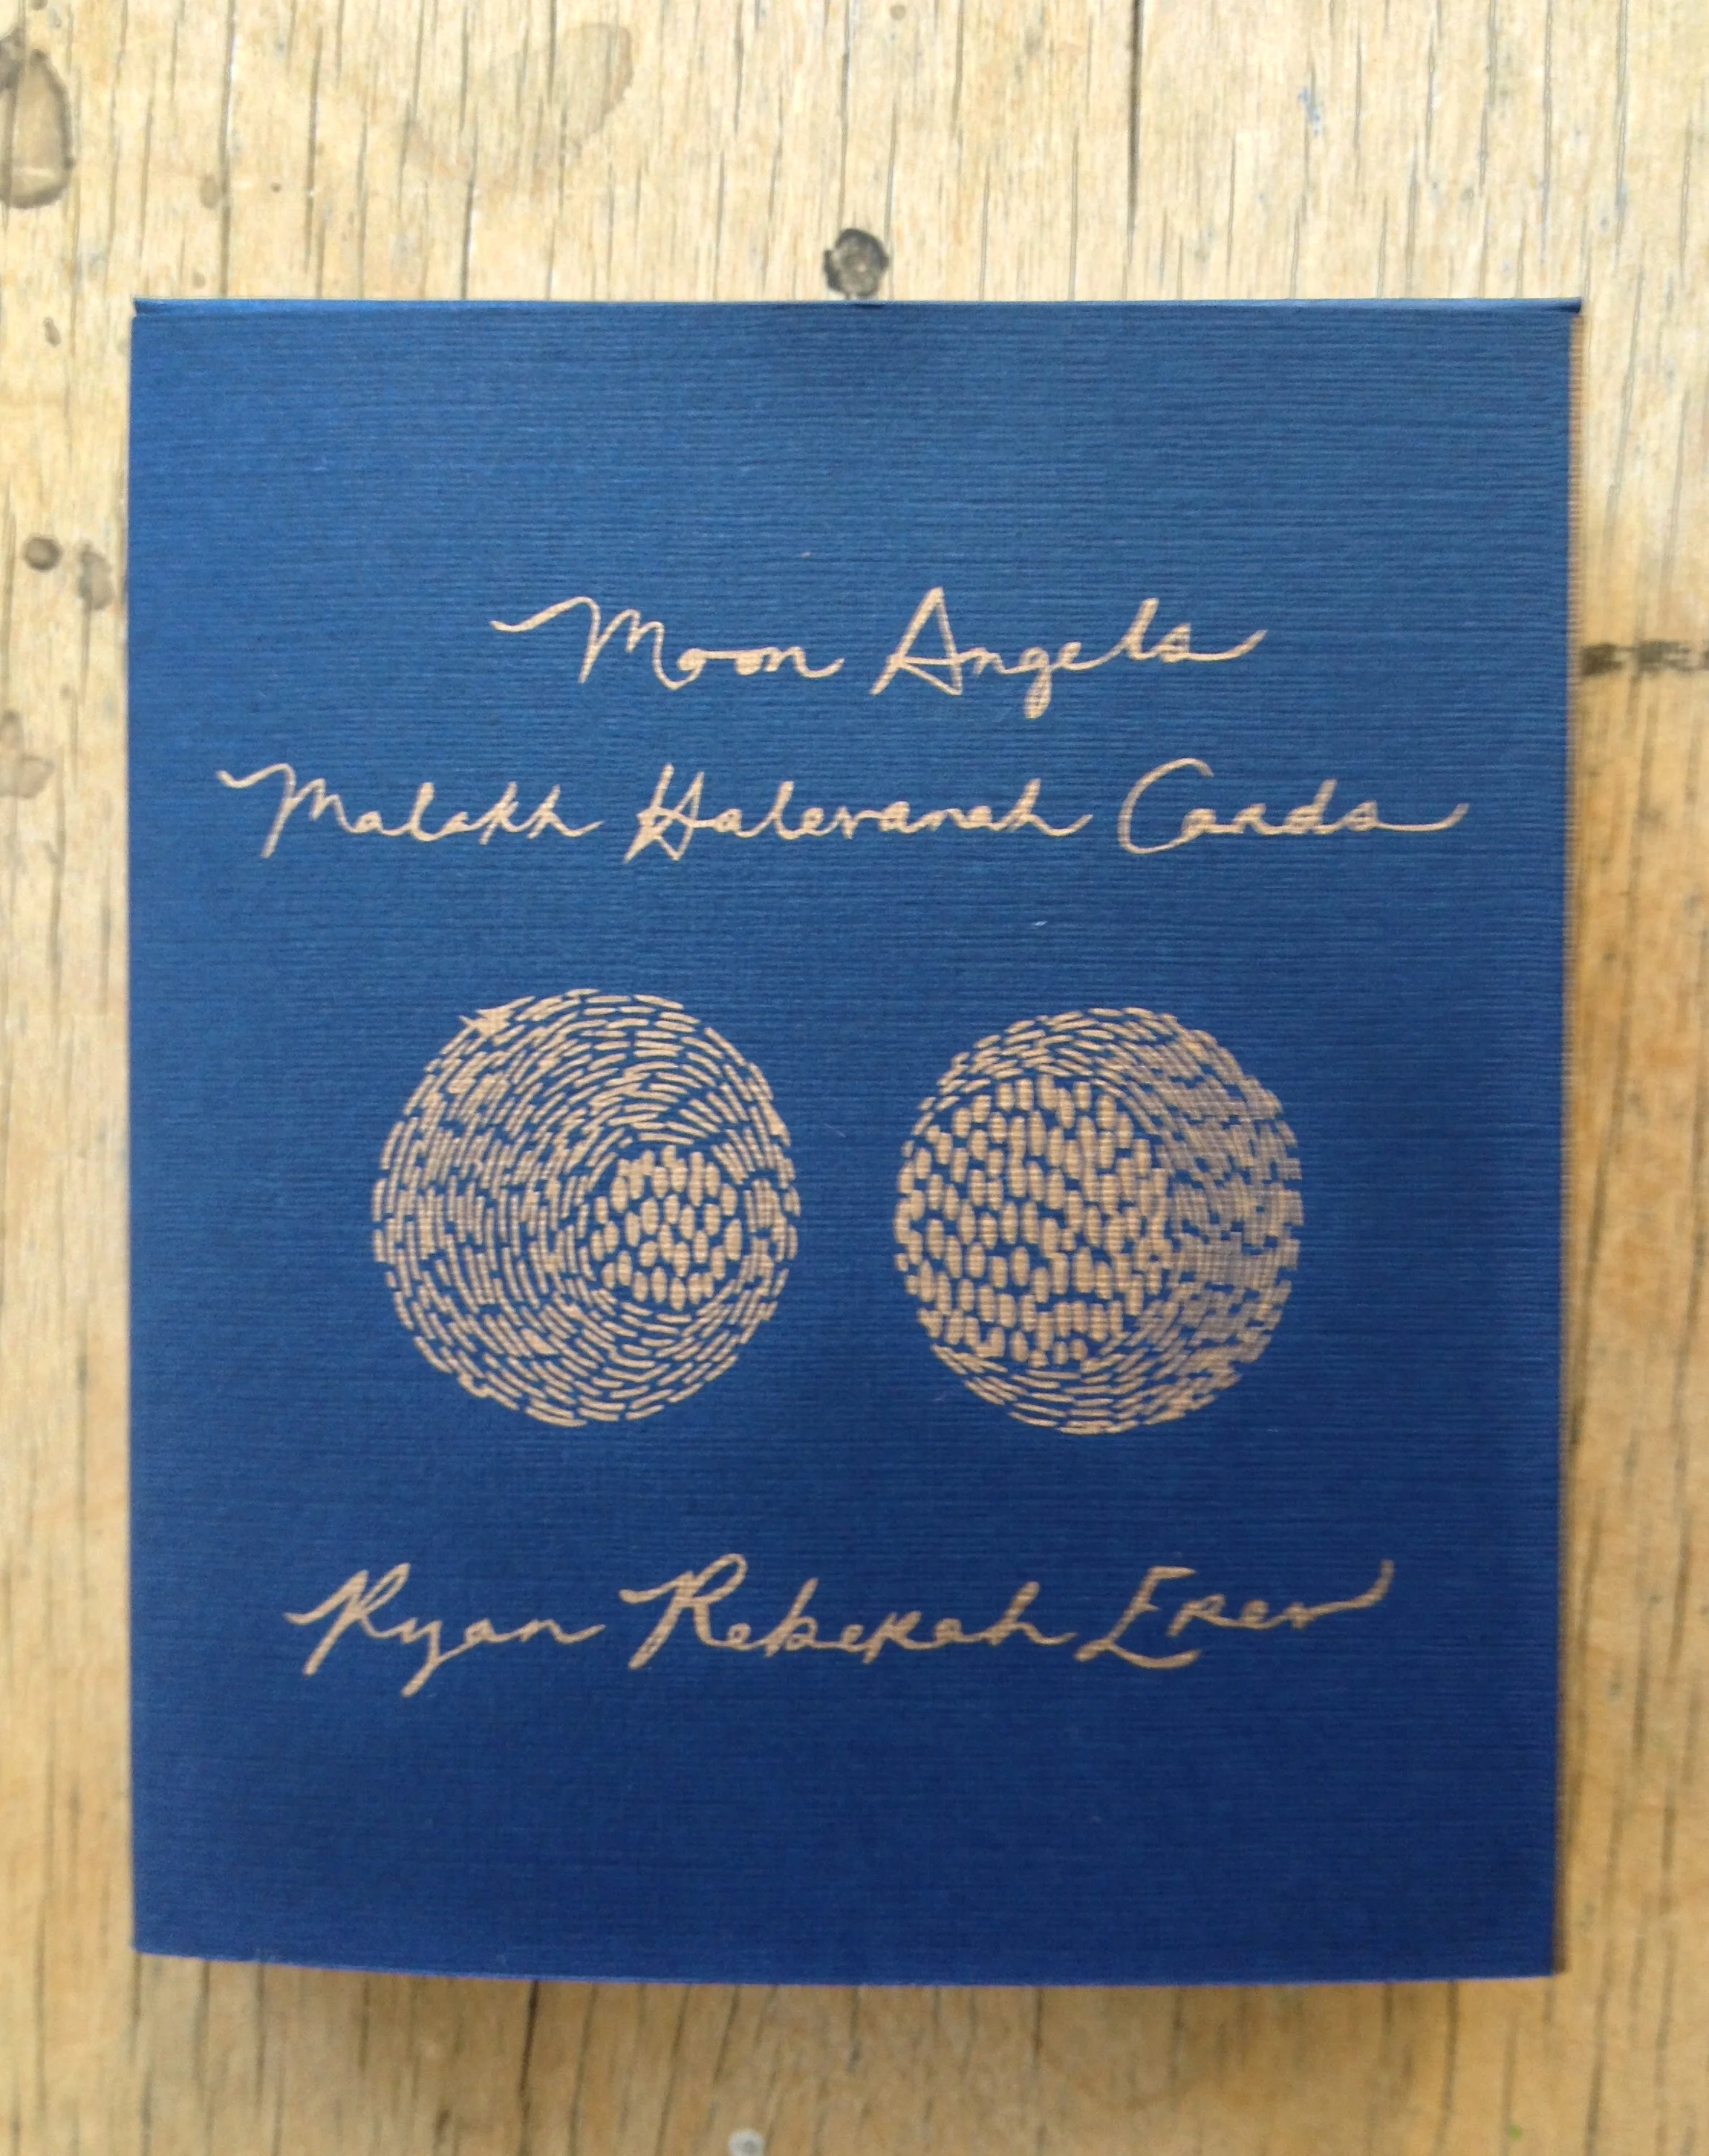 Moon Angels
Malakh Halevanah Cards
Ryan Rebekah Erev